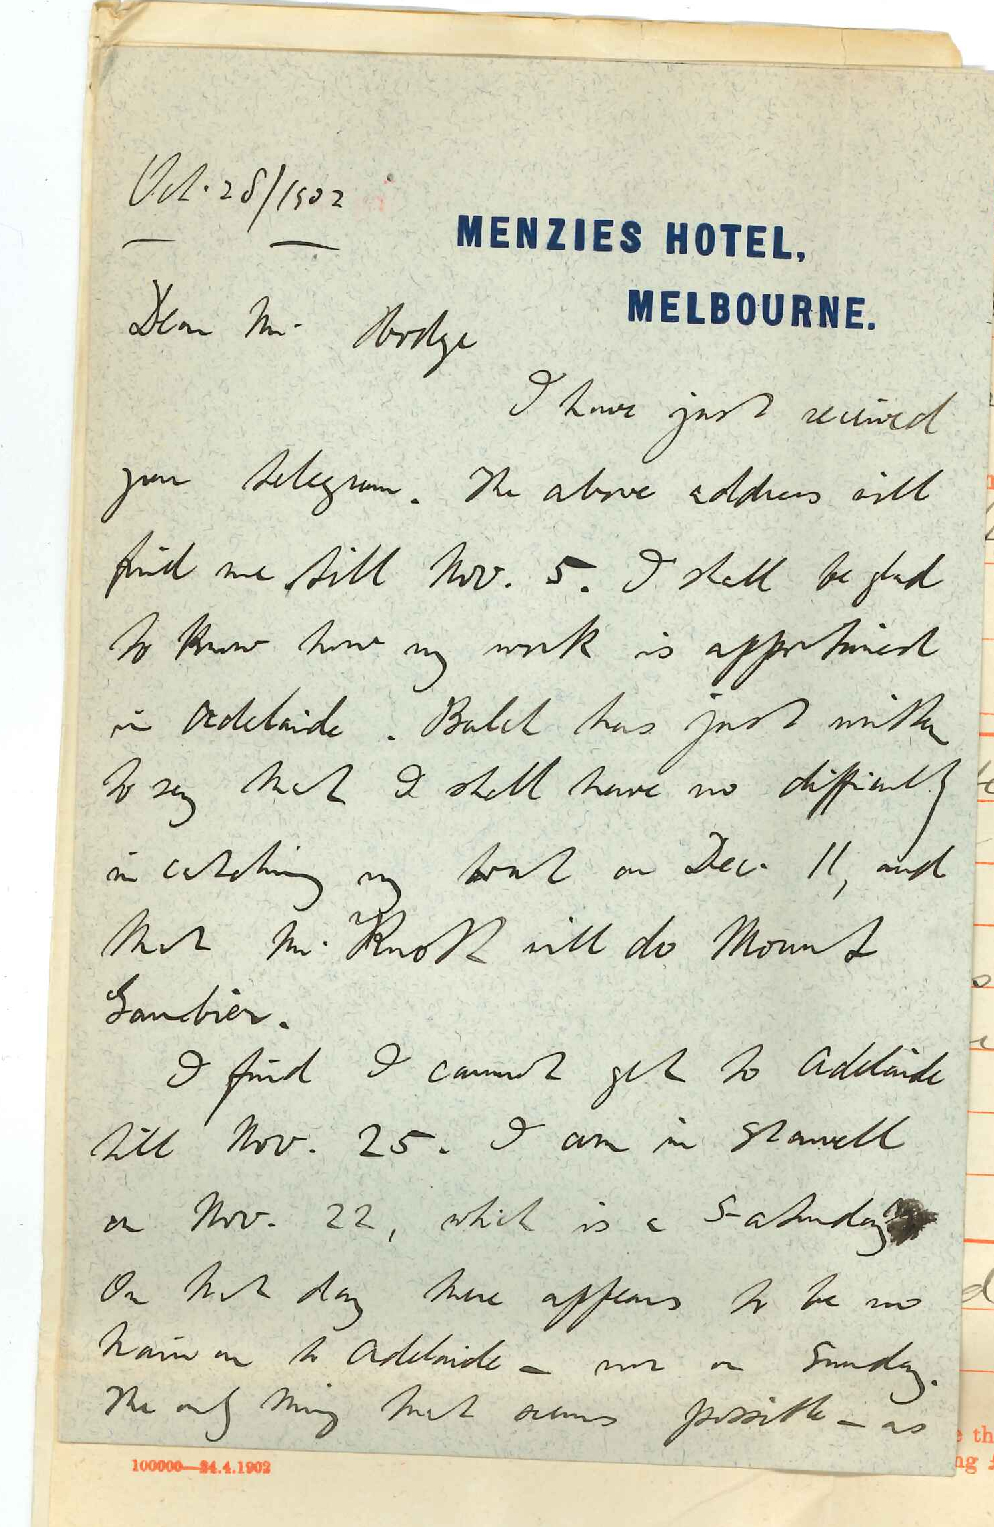 Oct. 28/1902
MENZIES HOTEL,
MELBOURNE.
Dear Mr. Hodge
I have just received
your telegram. The above address will
find me till Nov. 5. I shall be glad
to know how my work is apportioned
in Adelaide. Balch has just written
to say that I shall have no difficulty
in catching my boat on Dec. 11, and
that Mr. Knott will do Mount
Gambier.
I find I cannot get to Adelaide
till Nov. 25. I am in Stawell
on Nov. 22, which is a Saturday
On that day there appears to be no
train on to Adelaide – nor on Sunday.
The only thing that seems possible – as
100000—24.4.1902
th
ng